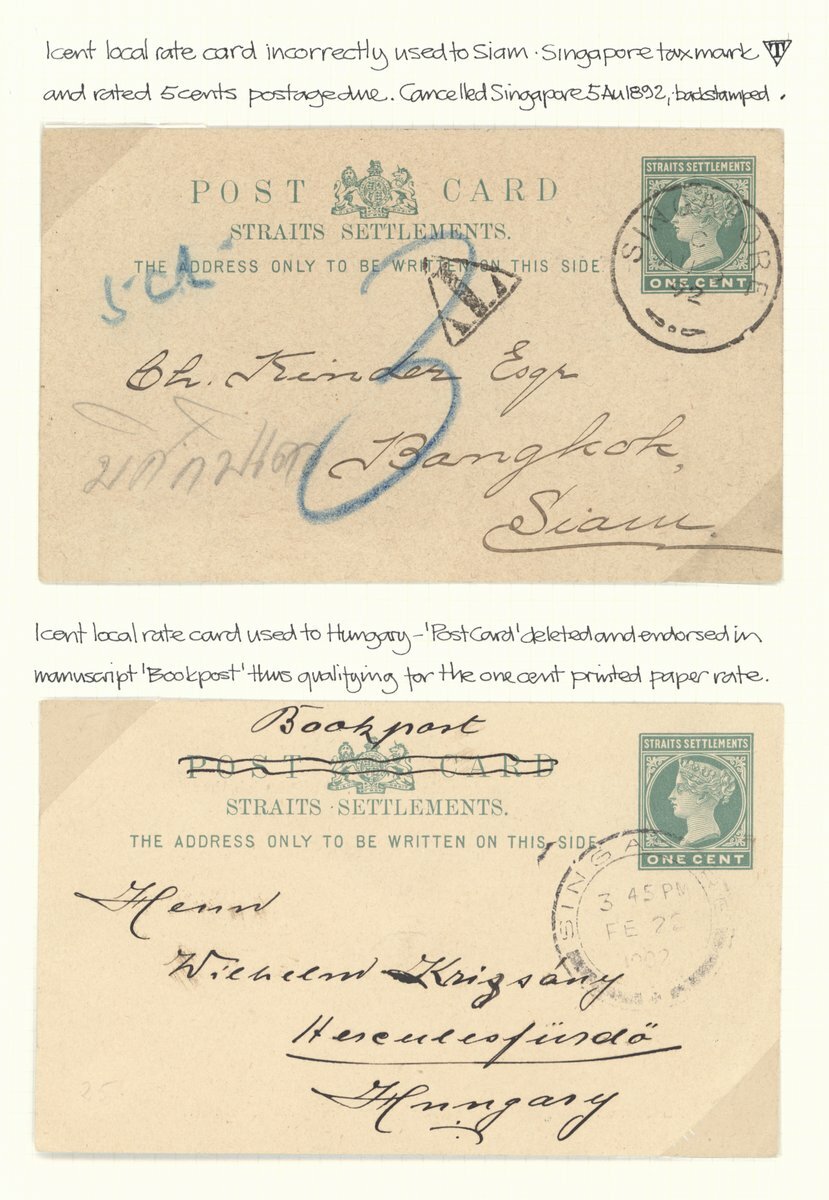 1cent local rate card incorrectly used to Siam. Singapore tax mark T
and rated 5cents postage due. Cancelled Singapore 5 Au 1892, backstamped.
POST CARD
STRAITS SETTLEMENTS.
THE ADDRESS ONLY TO BE WRITTEN ON THIS SIDE
STRAITS SETTLEMENTS
ONE CENT
SINGAPORE
92
T
3
Ch. Kinder Esqr
Bangkok,
Siam.
1cent local rate card used to Hungary - 'Post Card' deleted and endorsed in
manuscript 'Bookpost' thus qualifying for the one cent printed paper rate.
Bookpost
POST CARD
STRAITS SETTLEMENTS.
THE ADDRESS ONLY TO BE WRITTEN ON THIS SIDE
STRAITS SETTLEMENTS
ONE CENT
SINGAPORE
3 45 PM
FE 22
1902
Herrn
Wilhelm Krizsány
Herculesfürdö
Hungary
25.